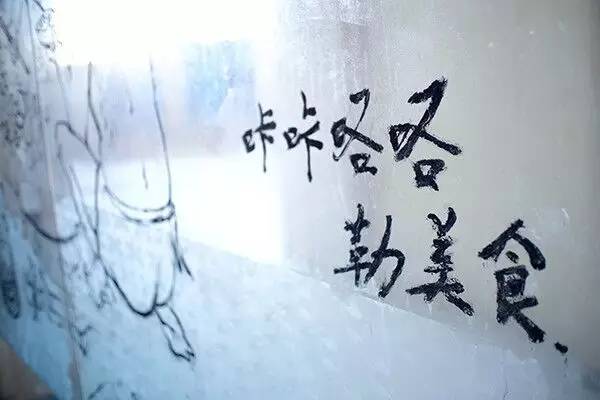 咔咔咯咯
勒美食、